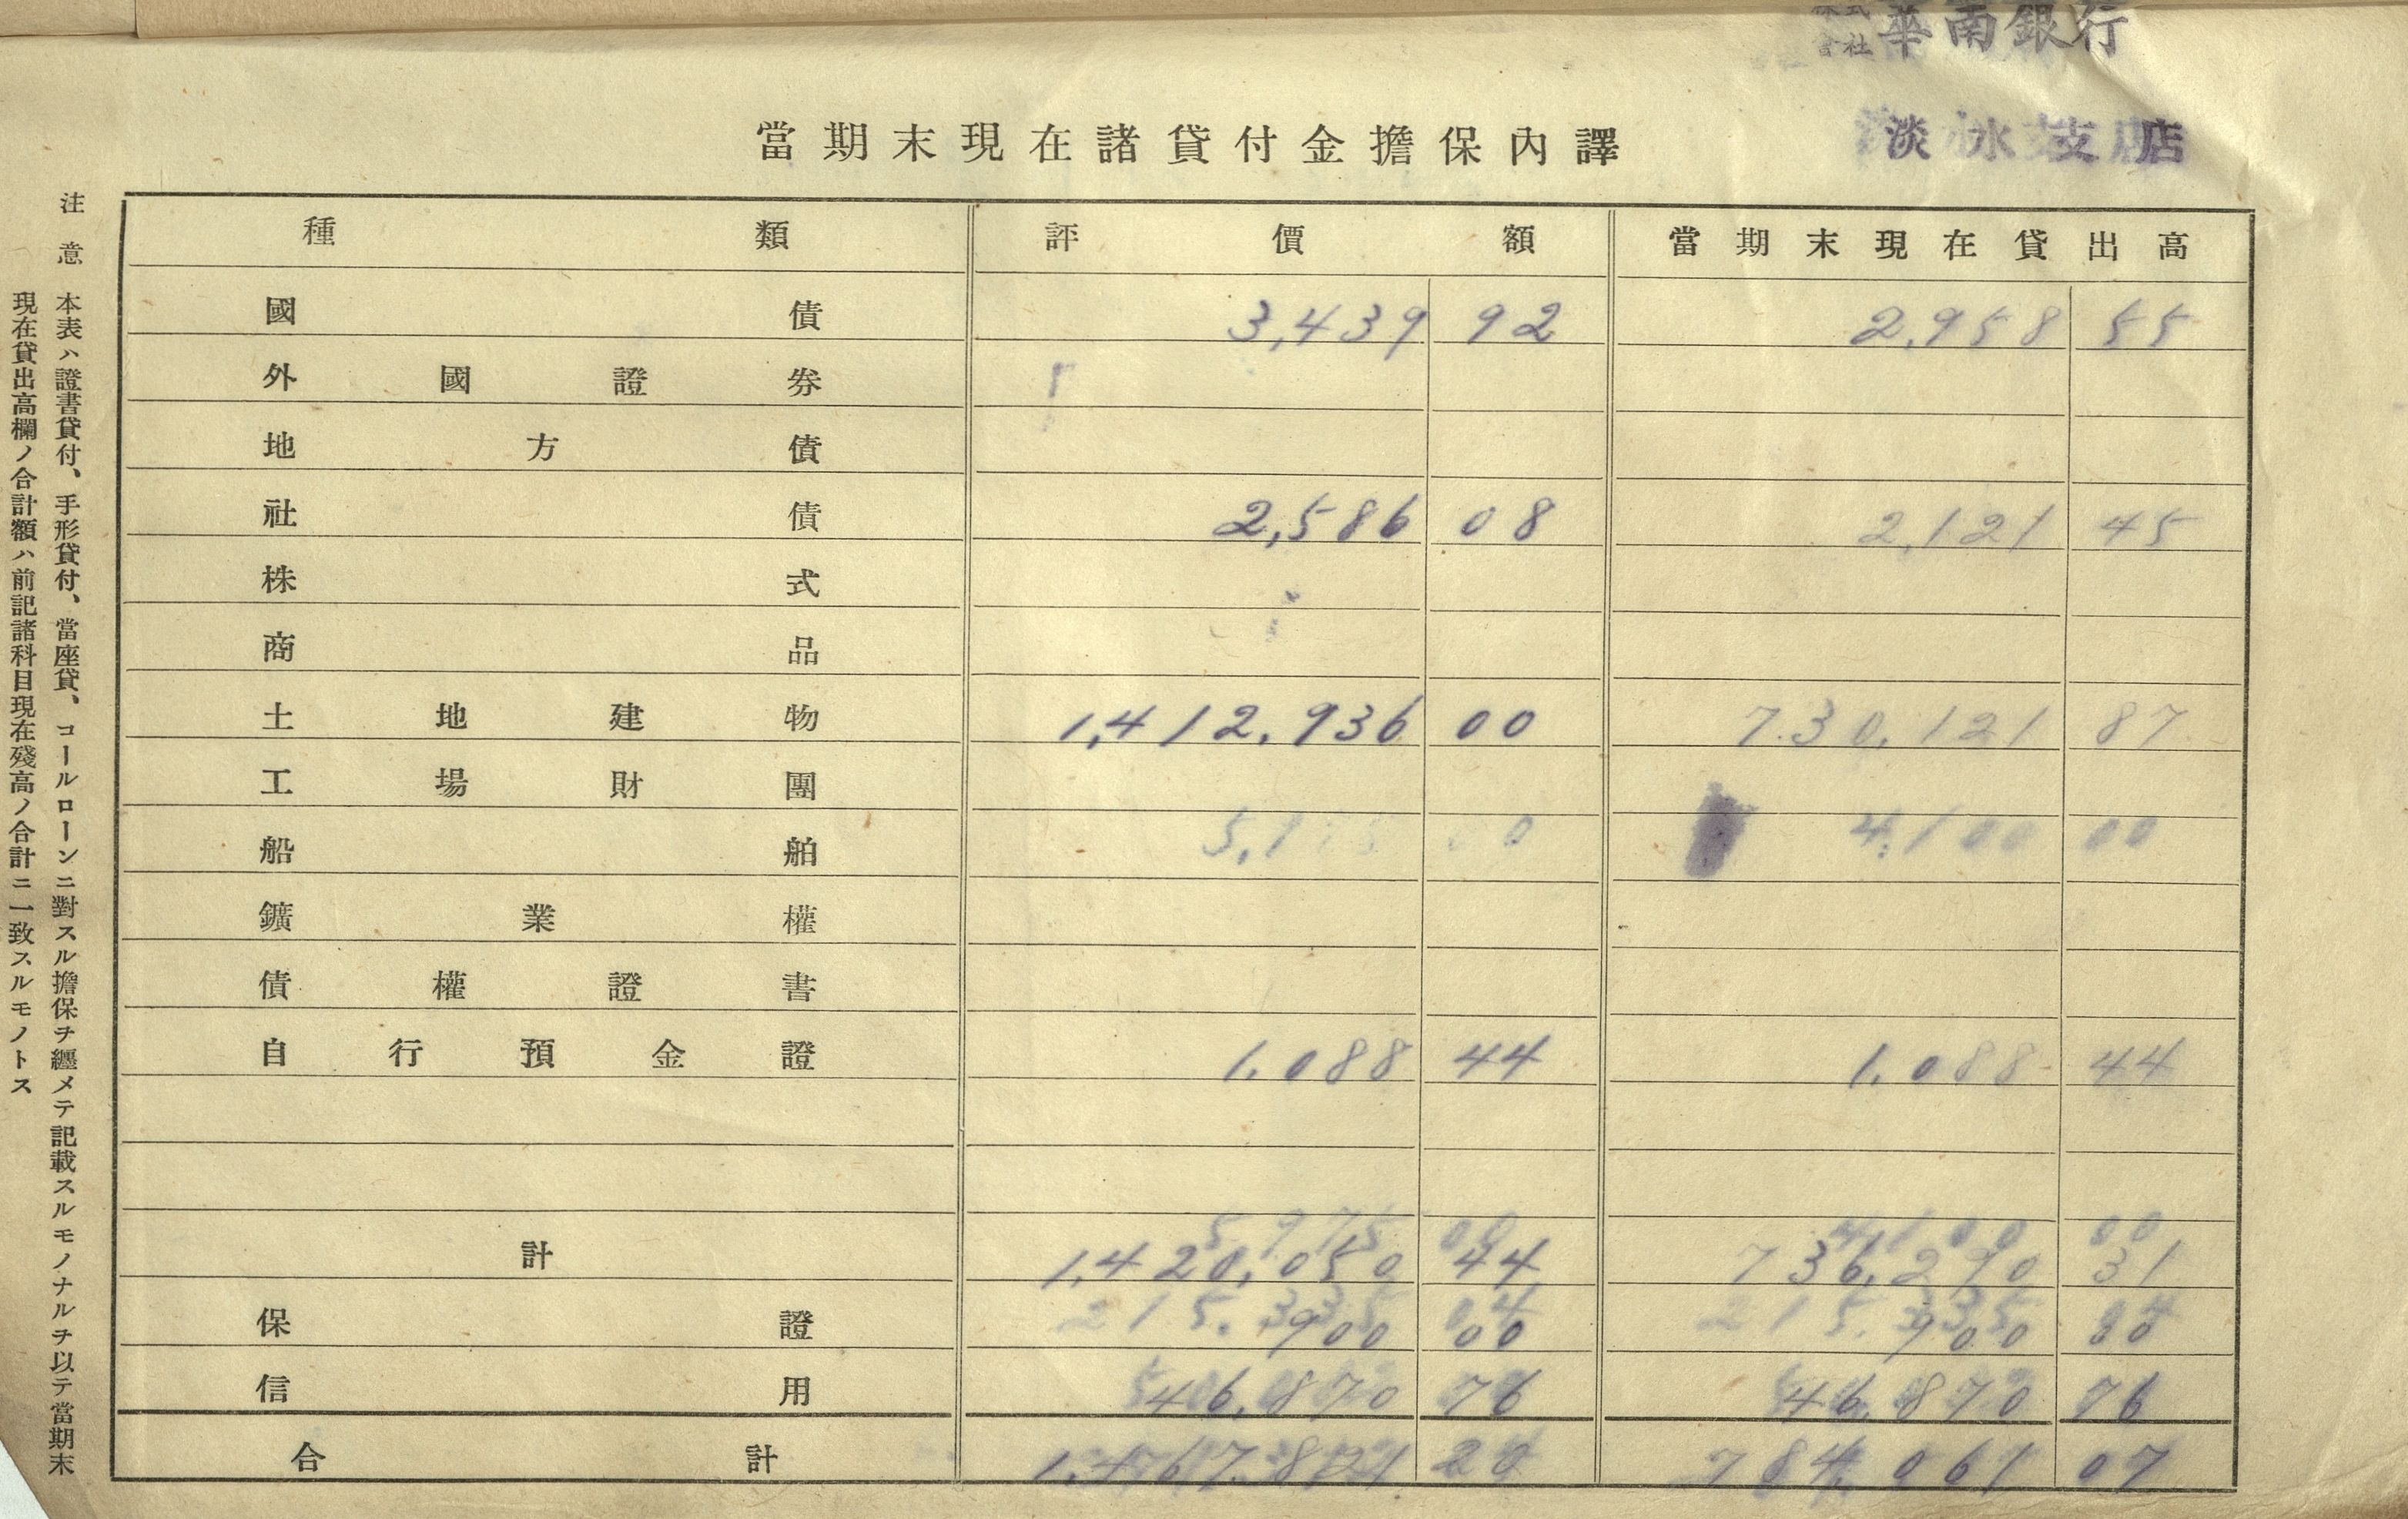 株式會社 華南銀行
淡水支店
當期末現在諸貸付金擔保內譯
種類 評價額 當期末現在貸出高
國債 3,439 92 2,958 55
外國證券
地方債
社債 2,586 08 2,121 45
株式
商品
土地建物 1,412,936 00 730,121 87
工場財團
船舶 4,100 00
鑛業權
債權證書
自行預金證 1,088 44 1,088 44
計 1,420,050 44 736,290 31
保證 900 00 900 00
信用 46,870 76 46,870 76
合計 1,467,821 20 784,061 07
注意
本表ハ證書貸付、手形貸付、當座貸、コールローンニ對スル擔保ヲ纒メテ記載スルモノナルヲ以テ當期末
現在貸出高欄ノ合計額ハ前記諸科目現在殘高ノ合計ニ一致スルモノトス